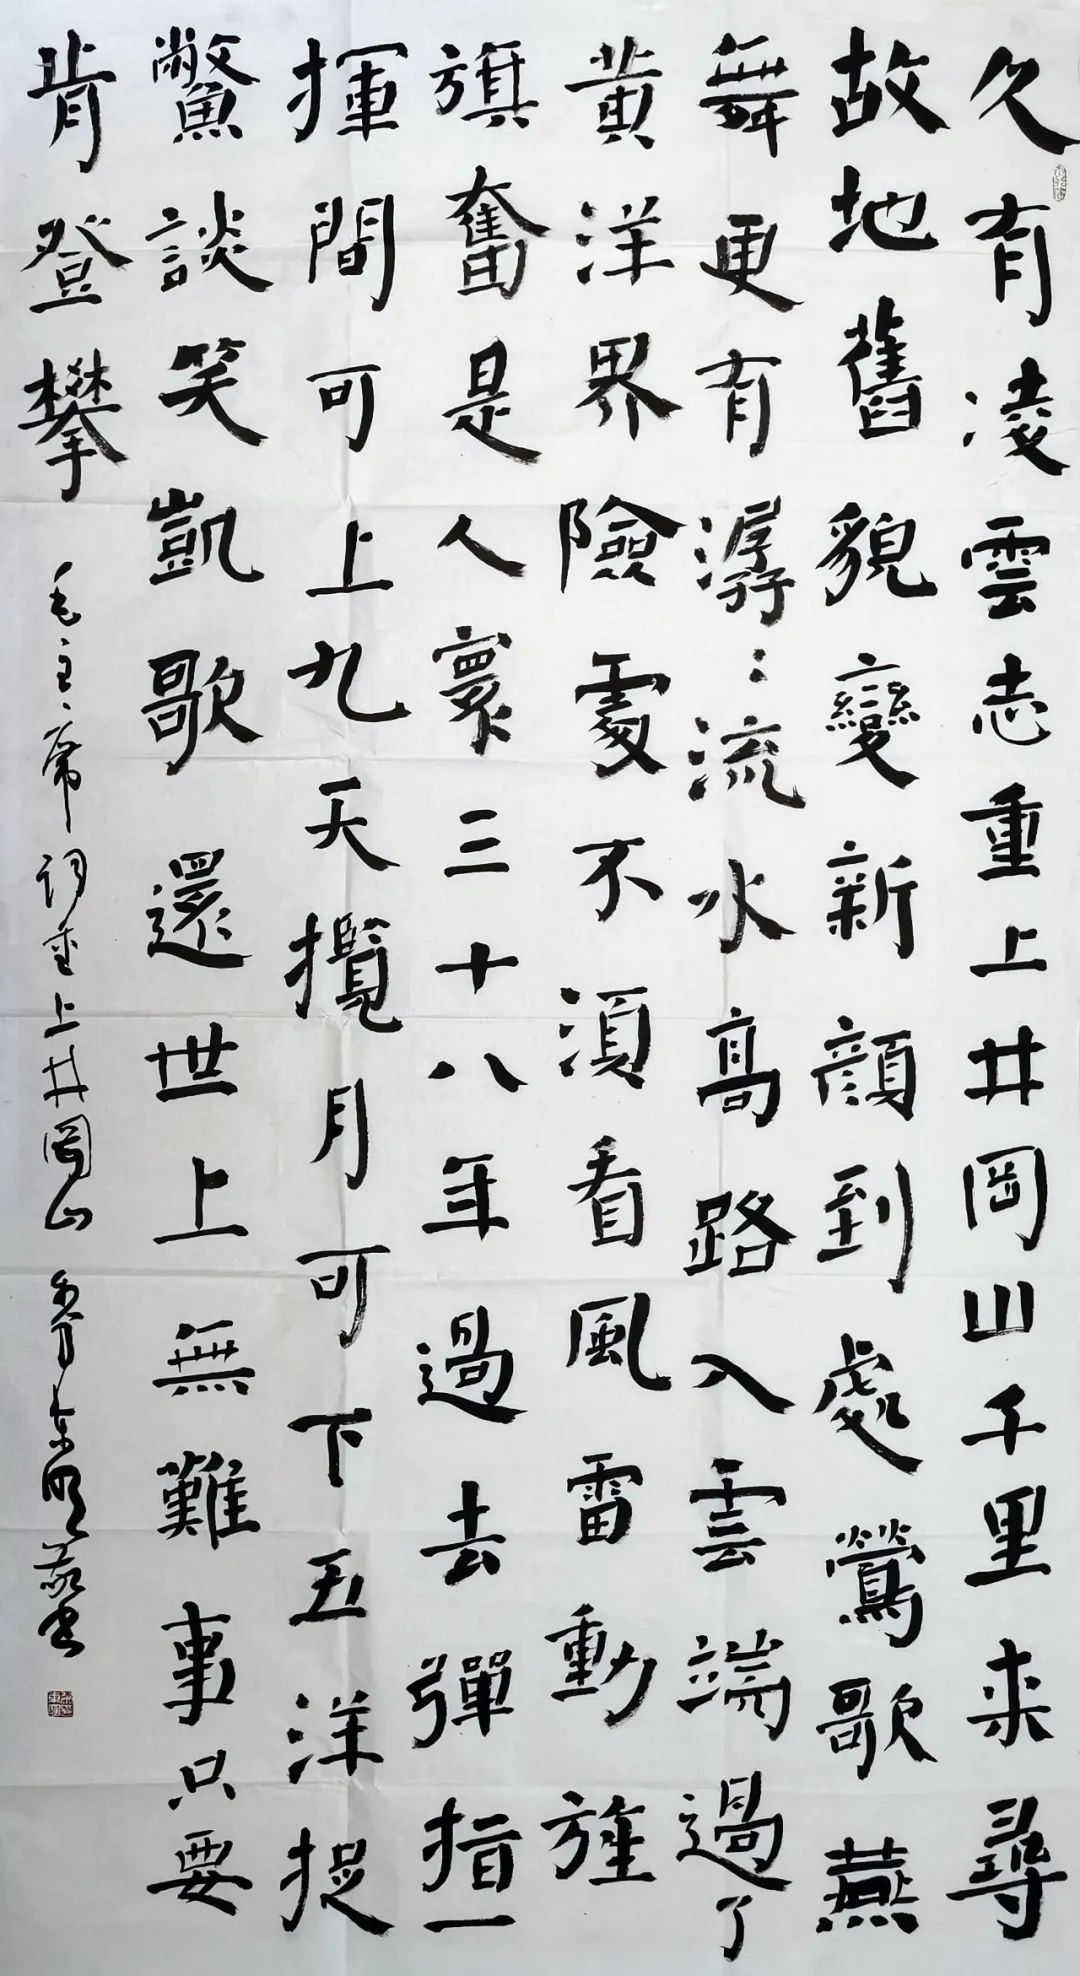 久有凌雲志重上井岡山千里来尋
故地舊貌變新顔到處鶯歌燕
舞更有潺〻流水高路入雲端過了
黄洋界險處不須看風雷動旌
旗奮是人寰三十八年過去彈指一
揮間可上九天攬月可下五洋捉
鱉談笑凱歌還世上無難事只要
肯登攀 毛主席詞重上井岡山